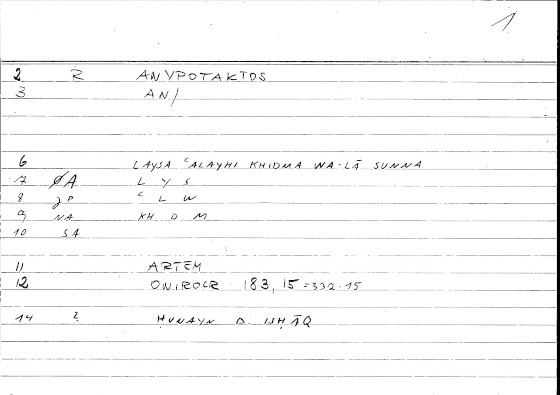 1
2 R ANYPOTAKTOS
3 AN/
6 LAYSA ʿALAYHI KHIDMA WA-LĀ SUNNA
7 ØA L Y S
8 JP ʿ L W
9 NA KH D M
10 SA
11 ARTEM
12 ONIROCR 183, 15 = 332.15
14 2 ḤUNAYN B. ISḤĀQ